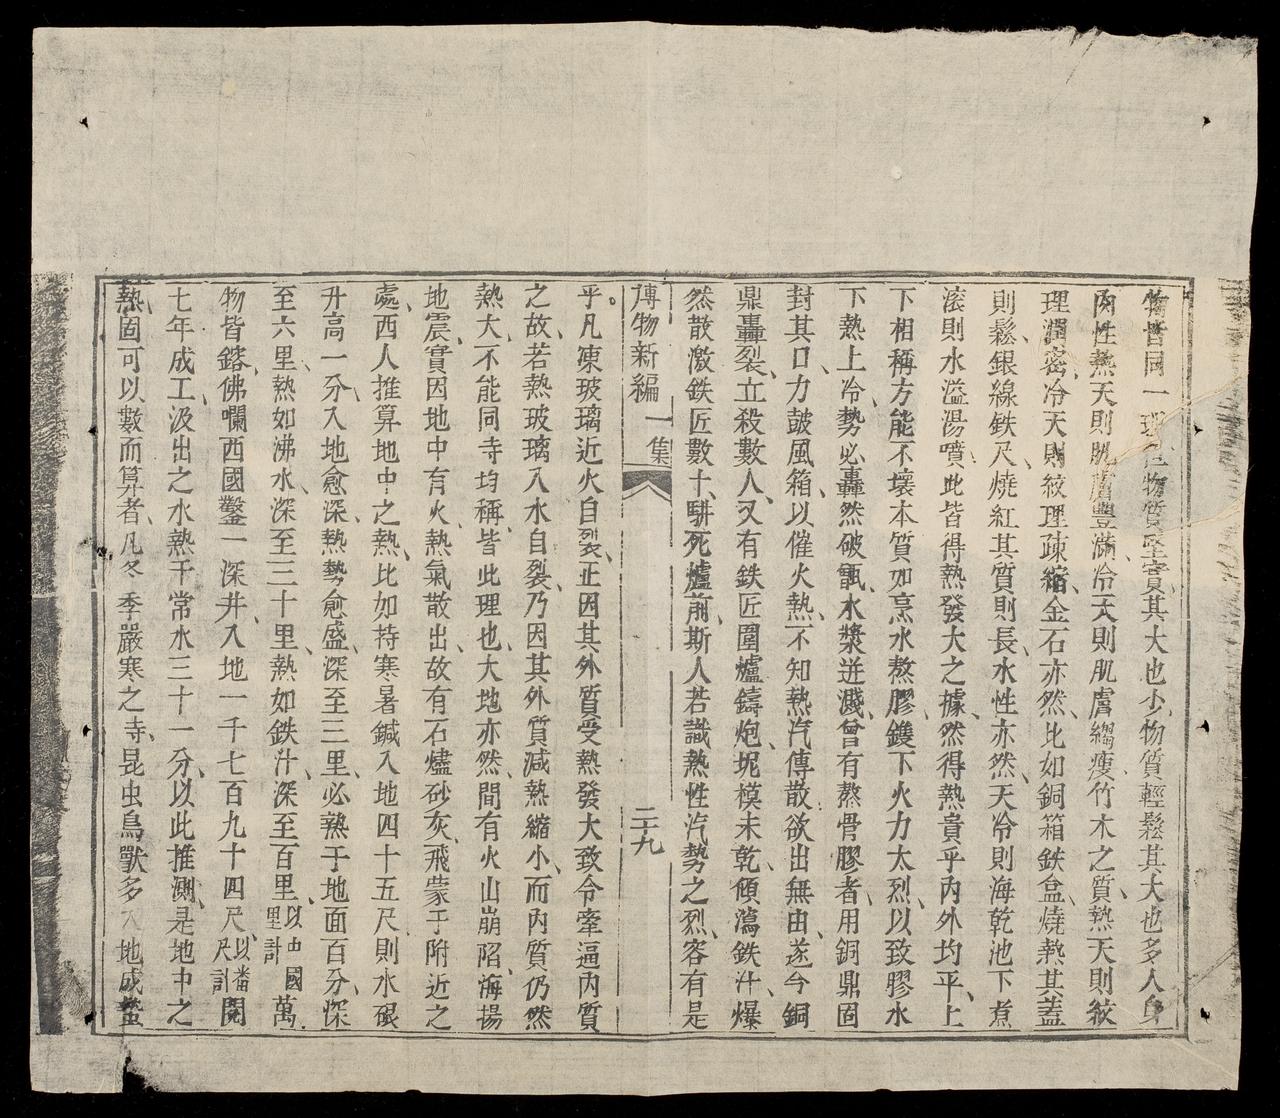 物皆同一理但物質堅實其大也少、物質輕鬆其大也多、人身
肉性熱天則肌膚豐滿、冷天則肌膚縐瘦、竹木之質、熱天則紋
理潤密、冷天則紋理疎縮、金石亦然、比如銅箱鉄盒、燒熱其蓋
則鬆、銀線鉄尺、燒紅其質則長、水性亦然、天冷則海乾池下、煮
滾則水溢湯噴、此皆得熱發大之據、然得熱貴乎內外均平、上
下相稱、方能不壞本質、如烹水熬膠、鑊下火力太烈、以致膠水
下熱上冷、勢必轟然破甑、水漿迸濺、曾有熬骨膠者、用銅鼎固
封其口、力鼓風箱、以催火熱、不知熱汽傳散欲出無由、遂令銅
鼎轟裂、立殺數人、又有鉄匠圍爐鑄炮、坭模未乾、傾瀉鉄汁、爆
然散激、鉄匠數十、駢死爐前、斯人若識熱性汽勢之烈、容有是
博物新編 一集
二十九
乎。凡凍玻璃近火自裂、正因其外質受熱發大、致令牽逼內質
之故、若熱玻璃入水自裂、乃因其外質減熱縮小、而內質仍然
熱大、不能同寺均稱、皆此理也、大地亦然、間有火山崩陷、海揚
地震、實因地中有火、熱氣散出、故有石爐砂灰、飛蒙于附近之
處、西人推算地中之熱、比如持寒暑鍼入地四十五尺、則水硍
升高一分、入地愈深、熱勢愈盛、深至三里、必熱于地面百分、深
至六里、熱如沸水、深至三十里、熱如鉄汁、深至百里、以中國里計萬
物皆鎔、佛囒西國鑿一深井、入地一千七百九十四尺、以番尺計閱
七年成工、汲出之水熱于常水三十一分、以此推測、是地中之
熱、固可以數而算者、凡冬季嚴寒之寺、昆虫鳥獸多入地成蟄